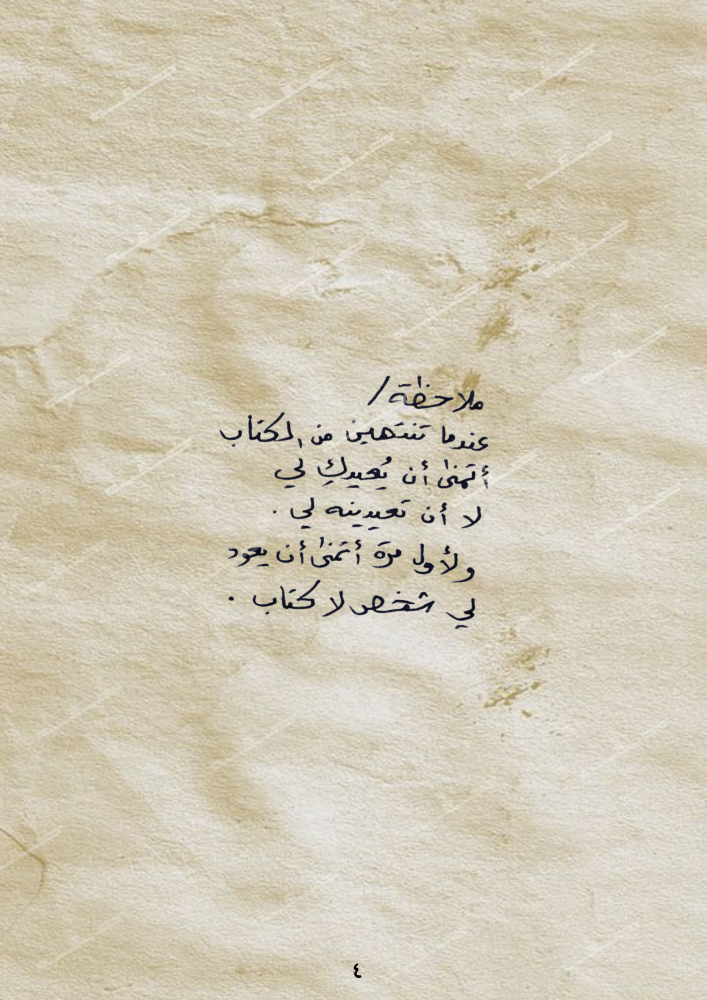 ملاحظة/
عندما تنتهين من الكتاب
أتمنى أن يُعيدكِ لي
لا أن تعيدينه لي .
ولأول مرة أتمنى أن يعود
لي شخص لا كتاب .
٤